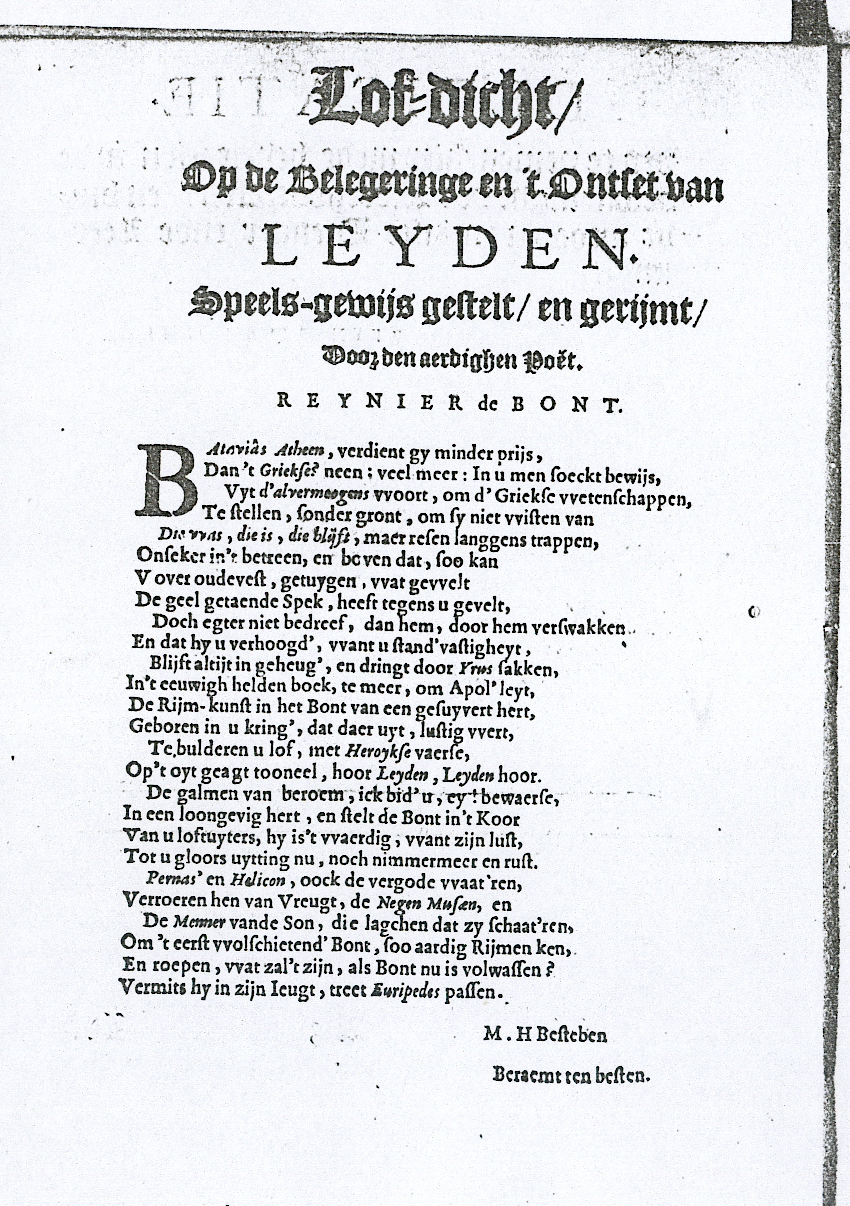 Lof-dicht/
Op de Belegeringe en 't Ontset van
LEYDEN.
Speels-gewijs gestelt/ en gerijmt/
Door den aerdighen Poët.
REYNIER de BONT.
BAtaviâs Atheen, verdient gy minder prijs,
Dan 't Griekse? neen; veel meer: In u men soeckt bewijs,
Vyt d'alvermoogens vvoort, om d' Griekse vvetenschappen,
Te stellen, sonder gront, om sy niet vvisten van
Die vvas, die is, die blijft, maer resen langgens trappen,
Onseker in't betreen, en boven dat, soo kan
V over oudevest, getuygen, vvat gevvelt
De geel getaende Spek, heeft tegens u gevelt,
Doch egter niet bedreef, dan hem, door hem verswakken.
En dat hy u verhoogd', vvant u stand'vastigheyt,
Blijft altijt in geheug', en dringt door Yrus sakken,
In't eeuwigh helden boek, te meer, om Apol' leyt,
De Rijm-kunst in het Bont van een gesuyvert hert,
Geboren in u kring', dat daer uyt, lustig vvert,
Te bulderen u lof, met Heroykse vaerse,
Op't oyt geagt tooneel, hoor Leyden, Leyden hoor.
De galmen van beroem, ick bid' u, ey! bewaerse,
In een loongevig hert, en stelt de Bont in't Koor
Van u loftuyters, hy is't vvaerdig, vvant zijn lust,
Tot u gloors uytting nu, noch nimmermeer en rust.
Pernas' en Helicon, oock de vergode vvaat'ren,
Verroeren hen van Vreugt, de Negen Musen, en
De Menner vande Son, die lagchen dat zy schaat'ren,
Om 't eerst vvolschietend' Bont, soo aardig Rijmen ken,
En roepen, vvat zal't zijn, als Bont nu is volwassen?
Vermits hy in zijn Ieugt, treet Euripedes passen.
M. H Besteben
Beraemt ten besten.